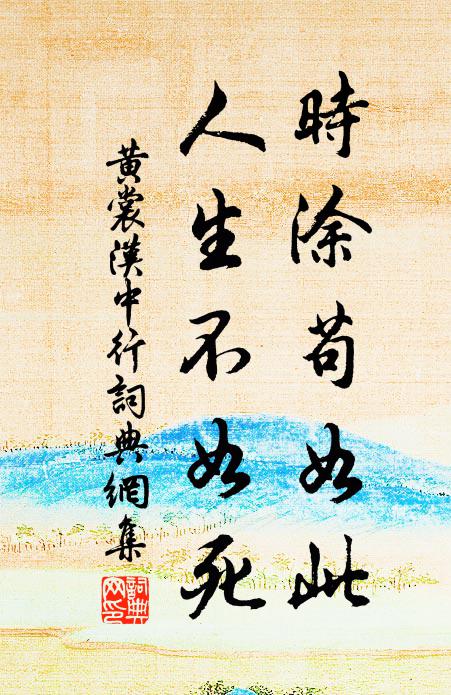 時涂苟如此
人生不如死
黄裳漢中行詞典網集